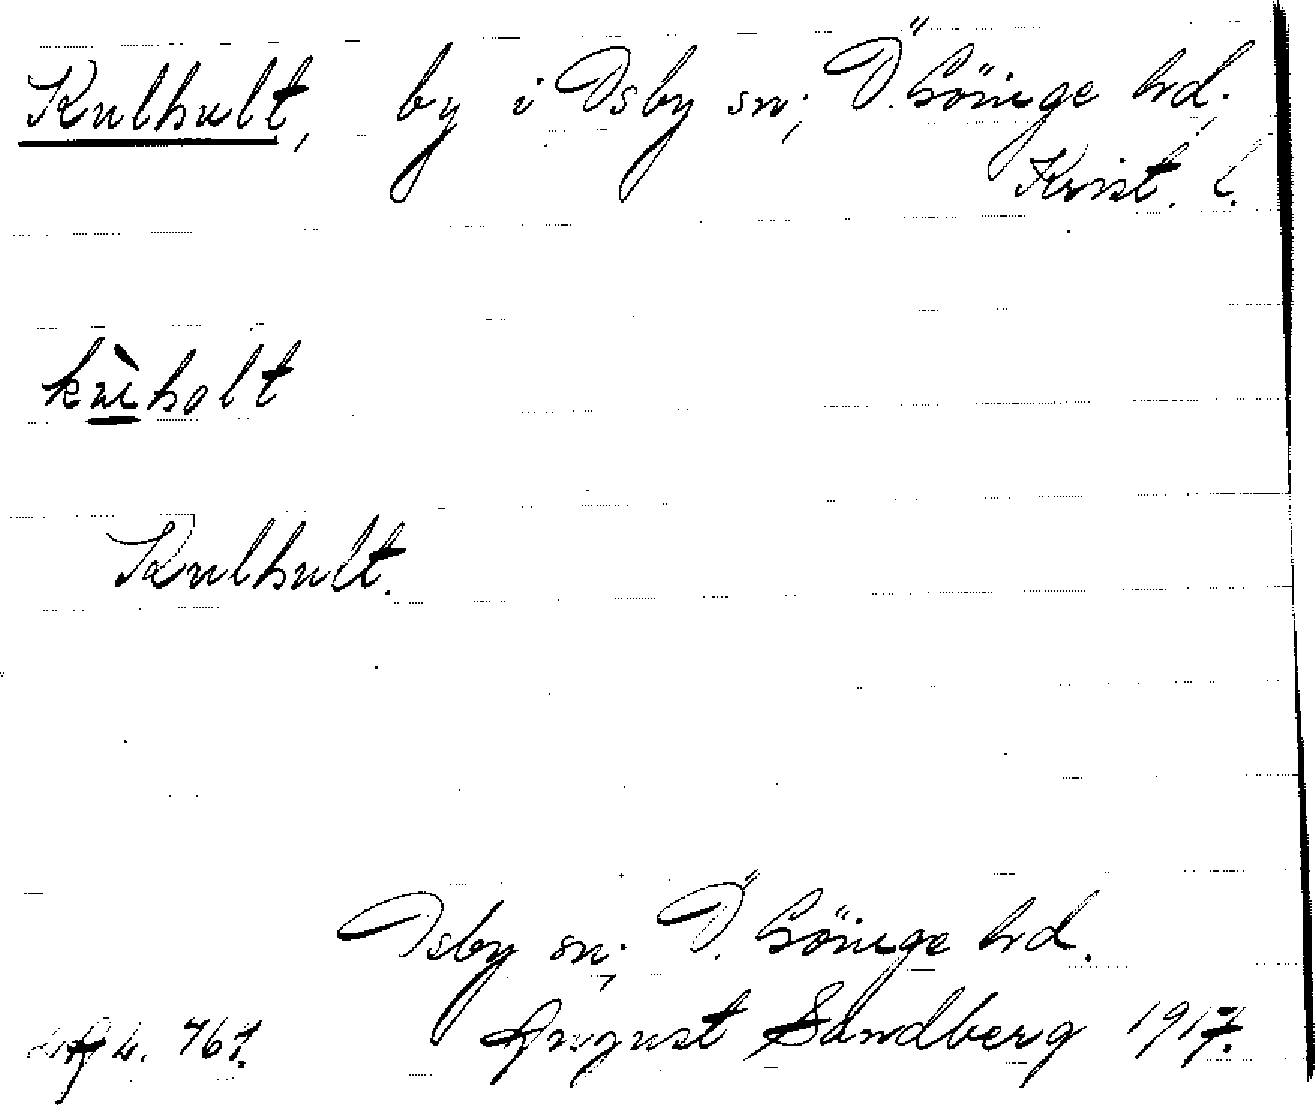 Kulhult, by i Osby sn; Ö. Göinge hd;
Krist. l.
kùholt
Kulhult.
Osby sn; Ö. Göinge hd.
August Sandberg 1917.